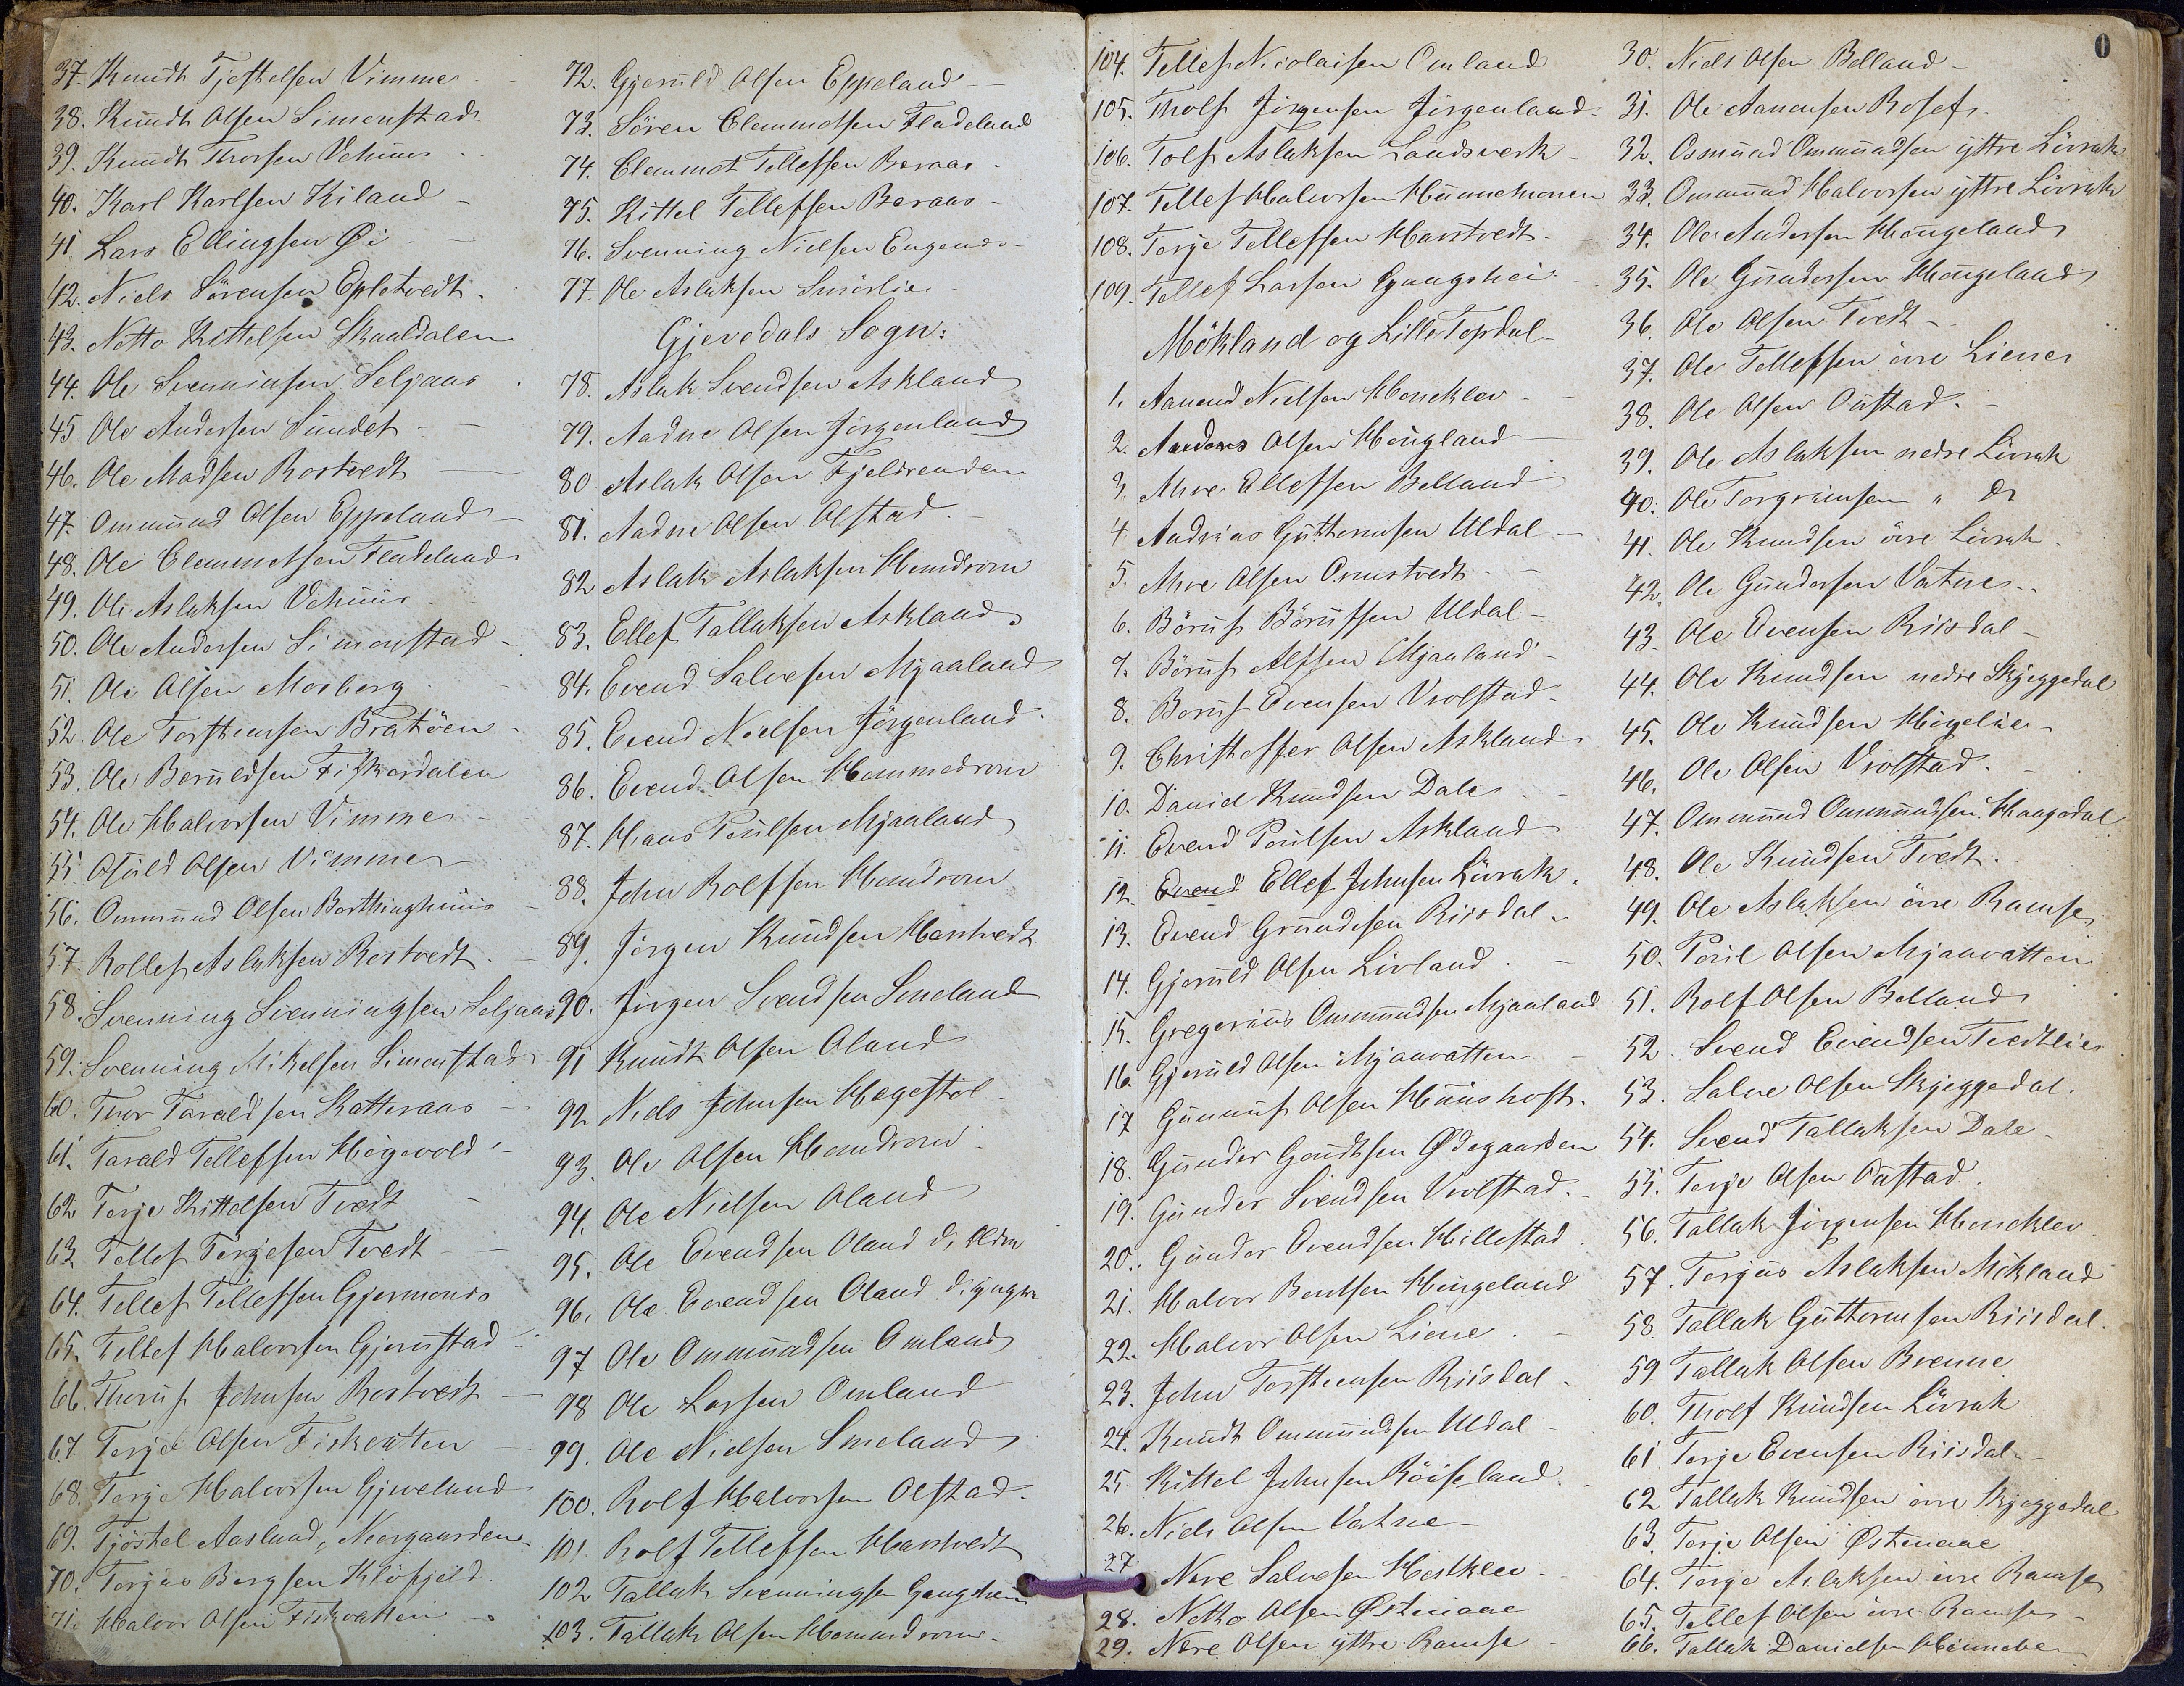 37. Knudt Tjøstelsen Vimme
38. Knudt Olsen Simonstad
39. Knudt Thorsen Vehuus
40. Karl Karlsen Kiland
41. Lars Ellingsen Øi
42. Niels Sörensen Epletvedt
43. Notto Kittelsen Skaaldalen
44. Ole Svenninsen Seljaas
45 Ole Andersen Sundet
46. Ole Madsen Rostvedt
47. Ommund Olsen Eppeland
48. Ole Clemmetsen Fladeland
49. Ole Aslaksen Vehuus
50. Ole Andersen Simonstad
51. Ole Olsen Mosberg
52. Ole Torstensen Bratöen
53. Ole Beruldsen Fiskardalen
54. Ole Halvorsen Vimme
55 Olsen Vimme
56. Ommund Olsen
57. Rollef Aslaksen Rostvedt
58. Svenning Svenningsen Seljaas
59. Svenning Mikelsen Simonstad
60. Thor Taraldsen Katteraas
61. Tarald Tellefsen Högevold
62 Terje Kittelsen Tvedt
63 Tellef Terjesen Tvedt
64. Tellef Tellefsen Gjermones
65. Tellef Halvorsen Gjerustad
66. Thoruf Johnsen Rostvedt
67 Terje Olsen Fiskvatten
68. Terje Halvorsen Gjeveland
69. Tjöstel Aasland, Nergaarden
70. Terjus Bergsen Klöfjeld
71. Halvor Olsen Fiskvatten
72. Gjeruld Olsen Eppeland
73. Sören Clemmetsen Fladeland
74. Clemmet Tellefsen Beraas
75. Kittel Tellefsen Beraas
76. Svenning Nielsen Engenes
77 Ole Aslaksen Smörlie
Gjevedals Sogn:
78. Aslak Svendsen Askland
79. Aadne Olsen Jörgenland
80 Aslak Olsen Fjeldrenden
81. Aadne Olsen Olstad
82 Aslak Aslaksen Homdrom
83. Ellef Tallaksen Askland
84. Evend Salvesen Mjaaland
85. Evend Nielsen Jörgenland
86. Evend Olsen Hommedrom
87. Hans Poulsen Mjaaland
88. John Rolfsen Homdrom
89. Jörgen Knudsen Harstvedt
90. Jörgen Svendsen Smeland
91 Knudt Olsen Oland
92 Niels Johnsen Hegestöl
93. Ole Olsen Homdrom
94. Ole Nielsen Oland
95. Ole Evendsen Oland d. Eldre
96. Ole Evendsen Oland d. yngre
97 Ole Ommundsen Omland
98 Ole Larsen Omland
99. Ole Nielsen Smeland
100. Rolf Halvorsen Olstad
101. Rolf Tellefsen Harstvedt
102 Tallak Svenningsen Gangshei
103. Tallak Olsen Hommedrom
104. Tellef Nicolaisen Omland
105. Tholf Jörgensen Jörgenland
106. Tolf Aslaksen Landsverk
107. Tellef Halvorsen
108. Terje Tellefsen Harstvedt
109. Tellef Larsen Gangshei
Mökland og Lille Topdal
1. Aanend Nielsen Honeklev
2. Anders Olsen Hougland
3. Ahre Ellefsen Belland
4. Andreas Guttormsen Uldal
5. Ahre Olsen Ormstvedt
6. Böruf Börufsen Uldal
7. Böruf Alfsen Mjaaland
8. Böruf Evensen Vrolstad
9. Christoffer Olsen Askland
10. Daniel Knudsen Dale
11. Evend Poulsen Askland
12. Evend Ellef Johnsen Lövrak
13. Evend Grundesen Riisdal
14. Gjeruld Olsen Livland
15. Gregorius Ommundsen Mjaaland
16. Gjeruld Olsen Mjaavatten
17 Gunnuf Olsen
18. Gunder Goudtsen Ødegaarden
19. Gunder Svendsen Vrolstad
20. Gunder Evendsen Hillestad
21. Halvor Bentsen Hougeland
22. Halvor Olsen Liene
23. John Torstensen Riisdal
24. Knudt Ommundsen Uldal
25 Kittel Johnsen Röiseland
26. Niels Olsen Vatne
27 Nere Salvesen Hestklev
28. Notto Olsen Østenaae
29. Nere Olsen yttre Ramse
0
30. Niels Olsen Belland
31. Ole Aanensen Rosef
32. Osmund Ommundsen yttre Lövrak
33. Ommund Halvorsen yttre Lövrak
34. Ole Andersen Hougeland
35. Ole Gundersen Hougeland
36. Ole Olsen Tvedt
37. Ole Tellefsen övre Liene
38. Ole Olsen Oustad
39. Ole Aslaksen nedre Lövrak
40. Ole Torgrimsen " do
41. Ole Knudsen övre Lövrak
42. Ole Gundersen Vatne
43. Ole Evensen Riisdal
44. Ole Knudsen nedre Skjeggedal
45. Ole Knudsen Högelie
46. Ole Olsen Vrolstad
47. Ommund Ommundsen Haugedal
48. Ole Knudsen Tvedt
49. Ole Aslaksen övre Ramse
50. Poul Olsen Mjaavatten
51. Rolf Olsen Belland
52 Svend Evendsen Tvedtlie
53. Salve Olsen Skjeggedal
54. Svend Tallaksen Dale
55. Terje Olsen Oustad
56. Tallak Jörgensen Honeklev
57. Terjus Aslaksen Mökland
58. Tallak Guttormsen Riisdal
59 Tallak Olsen Brenne
60. Tholf Knudsen Lövrak
61 Terje Evensen Riisdal
62 Tallak Knudsen övre Skjeggedal
63. Terje Olsen Østenaae
64. Terje Aslaksen övre Ramse
65. Tellef Olsen övre Ramse
66. Tallak Danielsen